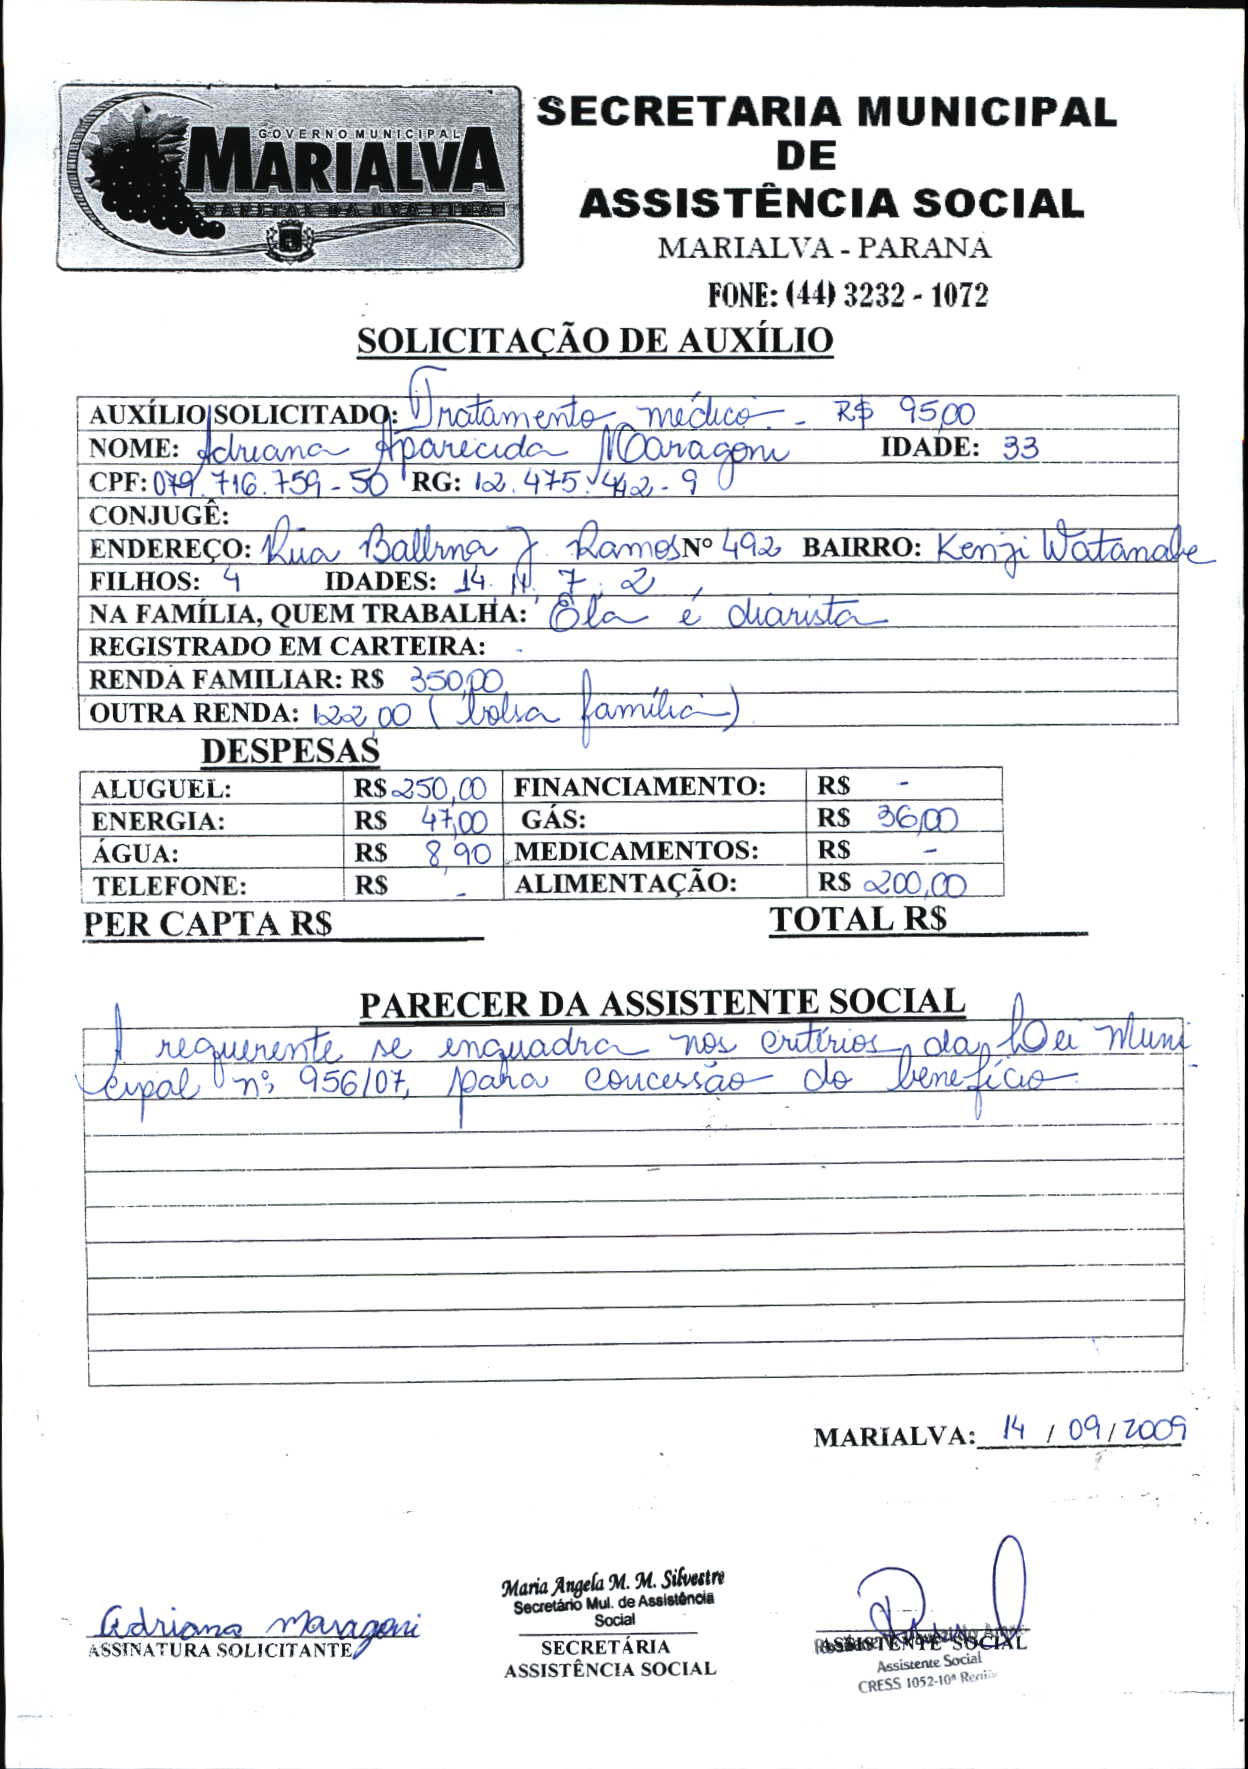 GOVERNO MUNICIPAL
MARIALVA
CAPITAL DA UVA FINA
SECRETARIA MUNICIPAL
DE
ASSISTÊNCIA SOCIAL
MARIALVA - PARANA
FONE: (44) 3232 - 1072
SOLICITAÇÃO DE AUXÍLIO
AUXÍLIO SOLICITADO: Tratamento médico - R$ 95,00
NOME: Adriana Aparecida Maragoni IDADE: 33
CPF: 079.716.759-50 RG: 12.475.442-9
CONJUGÊ:
ENDEREÇO: Rua J. Ramos Nº 492 BAIRRO: Kenzi Watanabe
FILHOS: 4 IDADES: 14. 11. 7. 2
NA FAMÍLIA, QUEM TRABALHA: Ela é diarista
REGISTRADO EM CARTEIRA: -
RENDA FAMILIAR: R$ 350,00
OUTRA RENDA: 122,00 (bolsa família)
DESPESAS
ALUGUEL: R$ 250,00 FINANCIAMENTO: R$ -
ENERGIA: R$ 47,00 GÁS: R$ 36,00
ÁGUA: R$ 8,90 MEDICAMENTOS: R$ -
TELEFONE: R$ - ALIMENTAÇÃO: R$ 200,00
PER CAPTA R$ TOTAL R$
PARECER DA ASSISTENTE SOCIAL
A requerente se enquadra nos critérios da Lei Muni
cipal nº 956/07, para concessão do benefício.
MARIALVA: 14 / 09 / 2009
Adriana Maragoni
ASSINATURA SOLICITANTE
Maria Angela M. M. Silvestre
Secretário Mul. de Assistência
Social
SECRETÁRIA
ASSISTÊNCIA SOCIAL
ASSISTENTE SOCIAL
Assistente Social
CRESS 1052-10ª